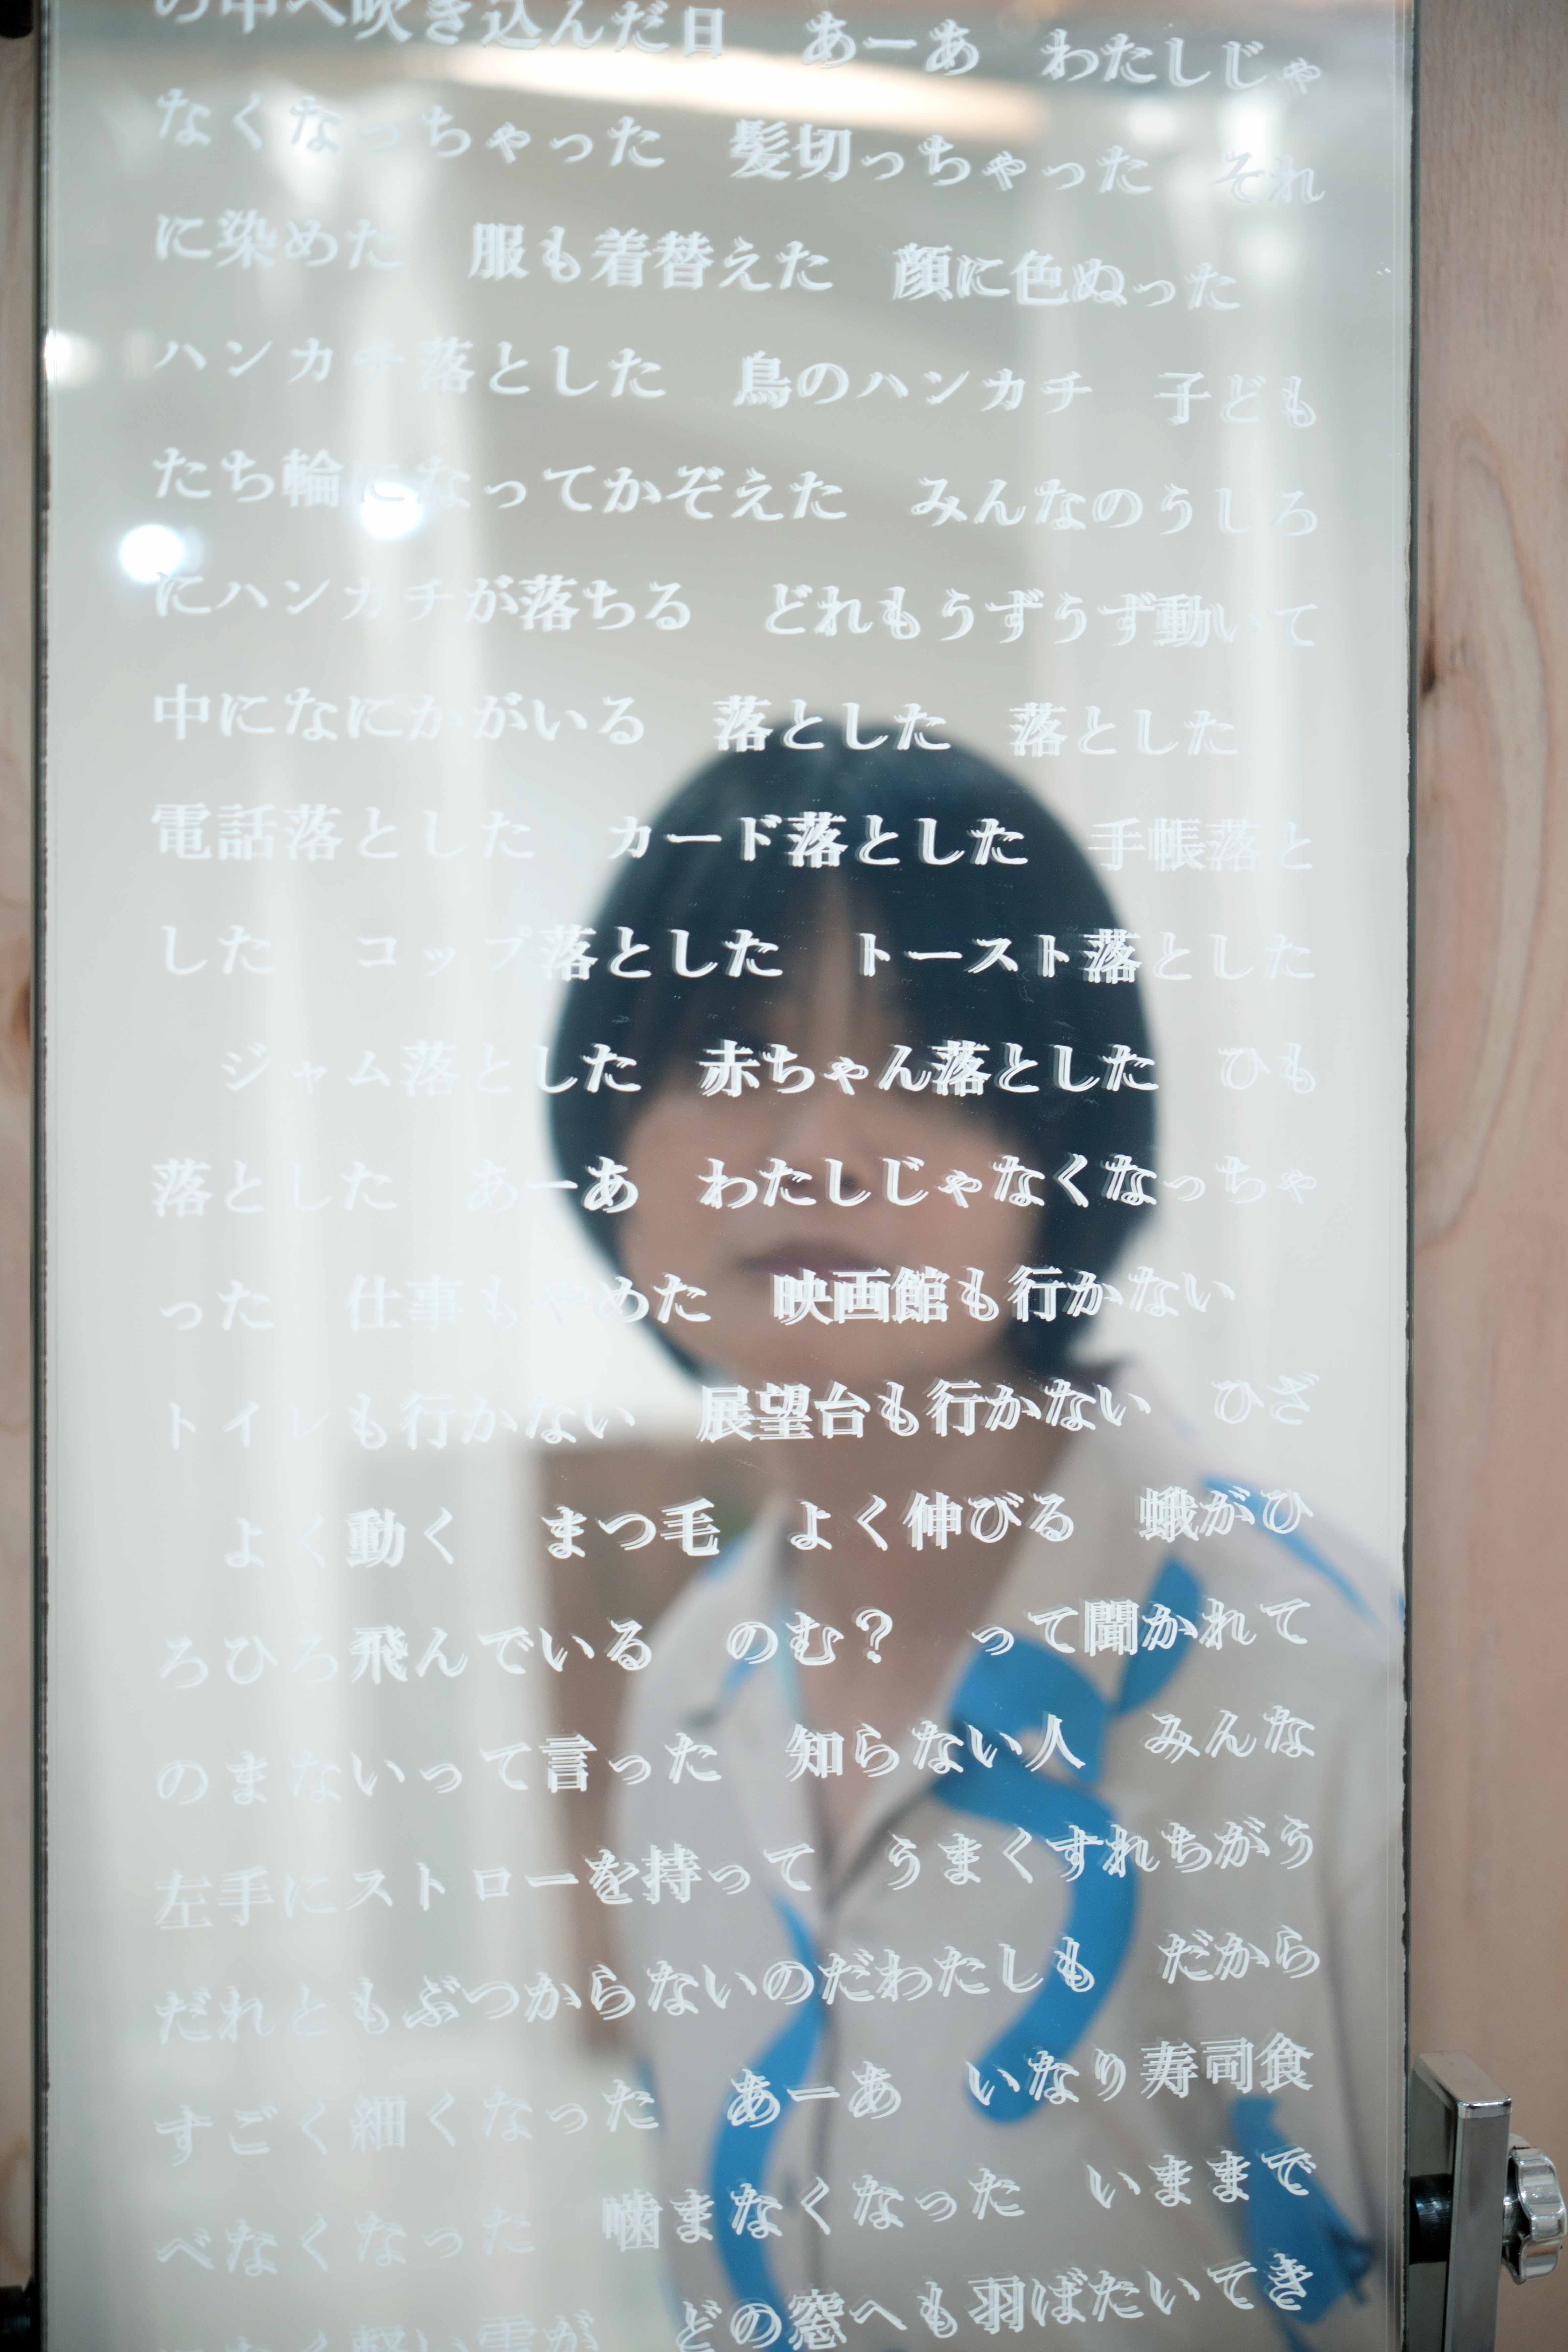 の中へ吹き込んだ日　あーあ　わたしじゃ
なくなっちゃった　髪切っちゃった　それ
に染めた　服も着替えた　顔に色ぬった
ハンカチ落とした　鳥のハンカチ　子ども
たち輪になってかぞえた　みんなのうしろ
にハンカチが落ちる　どれもうずうず動いて
中になにかがいる　落とした　落とした
電話落とした　カード落とした　手帳落と
した　コップ落とした　トースト落とした
ジャム落とした　赤ちゃん落とした　ひも
落とした　あーあ　わたしじゃなくなっちゃ
った　仕事もやめた　映画館も行かない
トイレも行かない　展望台も行かない　ひざ
よく動く　まつ毛　よく伸びる　蛾がひ
ろひろ飛んでいる　のむ？　って聞かれて
のまないって言った　知らない人　みんな
左手にストローを持って　うまくすれちがう
だれともぶつからないのだわたしも　だから
すごく細くなった　あーあ　いなり寿司食
べなくなった　噛まなくなった　いままで
になく軽い雲が　どの窓へも羽ばたいてき